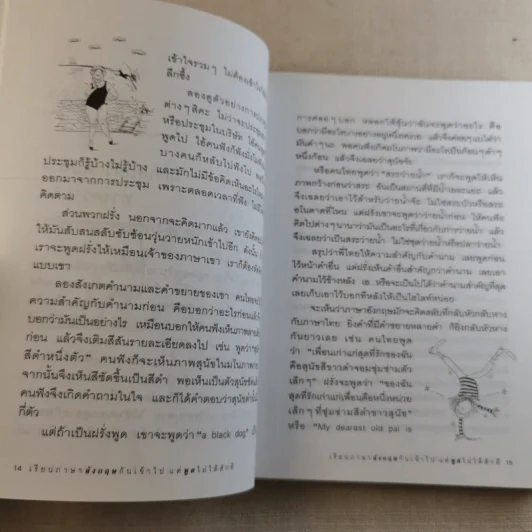 เข้าใจรวมๆ ไม่ต้องเข้าใจ
ลึกซึ้ง
ลองดูตัวอย่างการประ
ต่างๆสิคะ ไม่ว่าจะประชุม
หรือประชุมในบริษัท ใช้คน
พูดไป ใช้คนฟังก็ฟังมั่ง
บางคนก็หลับไปฟังไป พอ
ประชุมก็รู้บ้างไม่รู้บ้าง และมักไม่มีข้อคิดเห็นอะไร
ออกมาจากการประชุม เพราะตลอดเวลาที่ฟัง ไม่
คิดตาม
ส่วนพวกฝรั่ง นอกจากจะคิดมากแล้ว เขายัง
ให้มันสับสนสลับซับซ้อนวุ่นวายหนักเข้าไปอีก ดังนั้น
เราจะพูดฝรั่งให้เหมือนเจ้าของภาษาเขา เราก็ต้อง
แบบเขา
ลองสังเกตคำนามและคำขยายของเขา คนไทย
ความสำคัญกับคำนามก่อน คือบอกว่าอะไรก่อนแล้ว
บอกว่ามันเป็นอย่างไร เหมือนบอกให้คนฟังเห็นภาพ
ก่อน แล้วจึงเติมสีสันรายละเอียดลงไป เช่น พูดว่า
สีดำหนึ่งตัว" คนฟังก็จะเห็นภาพสุนัขในมโนภาพ
จากนั้นจึงเห็นสีชัดขึ้นเป็นสีดำ พอเห็นเป็นตัวสุนัข
คนฟังจึงเกิดคำถามในใจ และก็ได้คำตอบว่าสุนัขดำ
กี่ตัว
แต่ถ้าเป็นฝรั่งพูด เขาจะพูดว่า "a black dog"
14 เรียนภาษาอังกฤษกันเจ้าไป แต่พูดไม่ได้สักที
การค่อยๆบอก หลอกให้ลุ้นว่าฉันจะพูดว่าอะไร คือ
บอกว่ามีอะไรบางอย่างอยู่หนึ่ง แล้วจึงค่อยๆแปะใส่ว่า
มันดำๆนะ พอคนฟังคิดในใจว่ามีอะไรเป็นก้อนๆดำๆ
หนึ่งก้อน แล้วจึงเฉลยว่าสุนัขจ้ะ
หรือคนไทยพูดว่า "สระว่ายน้ำ" เราก็จะพูดให้เห็น
ภาพกว้างก่อนว่าสระ อันเป็นสถานที่ที่มีน้ำเยอะแยะ แล้ว
จึงเฉลยว่าเอาไว้สำหรับว่ายน้ำจ้ะ ไม่ใช่สระบัวหรือสระ
อโนดาตที่ไหน แต่ฝรั่งเขาจะพูดว่ายน้ำก่อน ให้คนฟัง
คิดไปต่างๆนานาว่ามันเป็นอะไรที่เกี่ยวกับการว่ายน้ำ แล้ว
จึงเฉลยว่าเป็นสระว่ายน้ำ ไม่ใช่ชุดว่ายน้ำหรือปลาว่ายน้ำ
สรุปว่าพี่ไทยให้ความสำคัญกับคำนาม เลยพูดก่อน
ไว้หน้าคำอื่น แต่ฝรั่งเห็นคำอื่นสำคัญกว่าคำนาม เลยเอา
คำนามไว้ข้างหลัง เอ..หรือจะเป็นไปได้ว่าคำนามสำคัญที่สุด
เลยเก็บเอาไว้บอกทีหลังให้เป็นไฮไลท์หน่อย
จะเห็นว่าภาษาอังกฤษมักจะคิดสลับที่กลับหัวกลับหาง
กับภาษาไทย ยิ่งคำที่มีคำขยายหลายคำ ก็ยิ่งกลับหัวหาง
กันยาวเลย เช่น คนไทยพูด
ว่า "เพื่อนเก่าแก่สุดที่รักของฉัน
คือสุนัขสีขาวดำจอมซุ่มซ่าม
เล็กๆ" ฝรั่งจะพูดว่า "ของฉัน
สุดที่รักเก่าแก่เพื่อนคือหนึ่งหน่วย
เล็กๆที่ซุ่มซ่ามสีดำขาวสุนัข"
หรือ "My dearest old pal is
เรียนภาษาอังกฤษกันเจ้าไป แต่พูดไม่ได้สักที 15